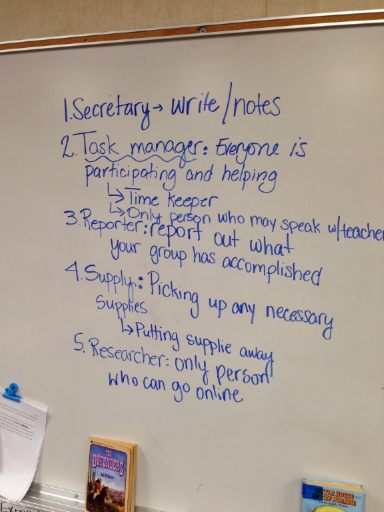 1. Secretary → write/notes
2. Task manager: Everyone is
participating and helping
↳ Time keeper
↳ Only person who may speak w/teacher
3. Reporter: report out what
your group has accomplished
4. Supply: Picking up any necessary
Supplies
↳ Putting supplie away
5. Researcher: only person
who can go online
THE